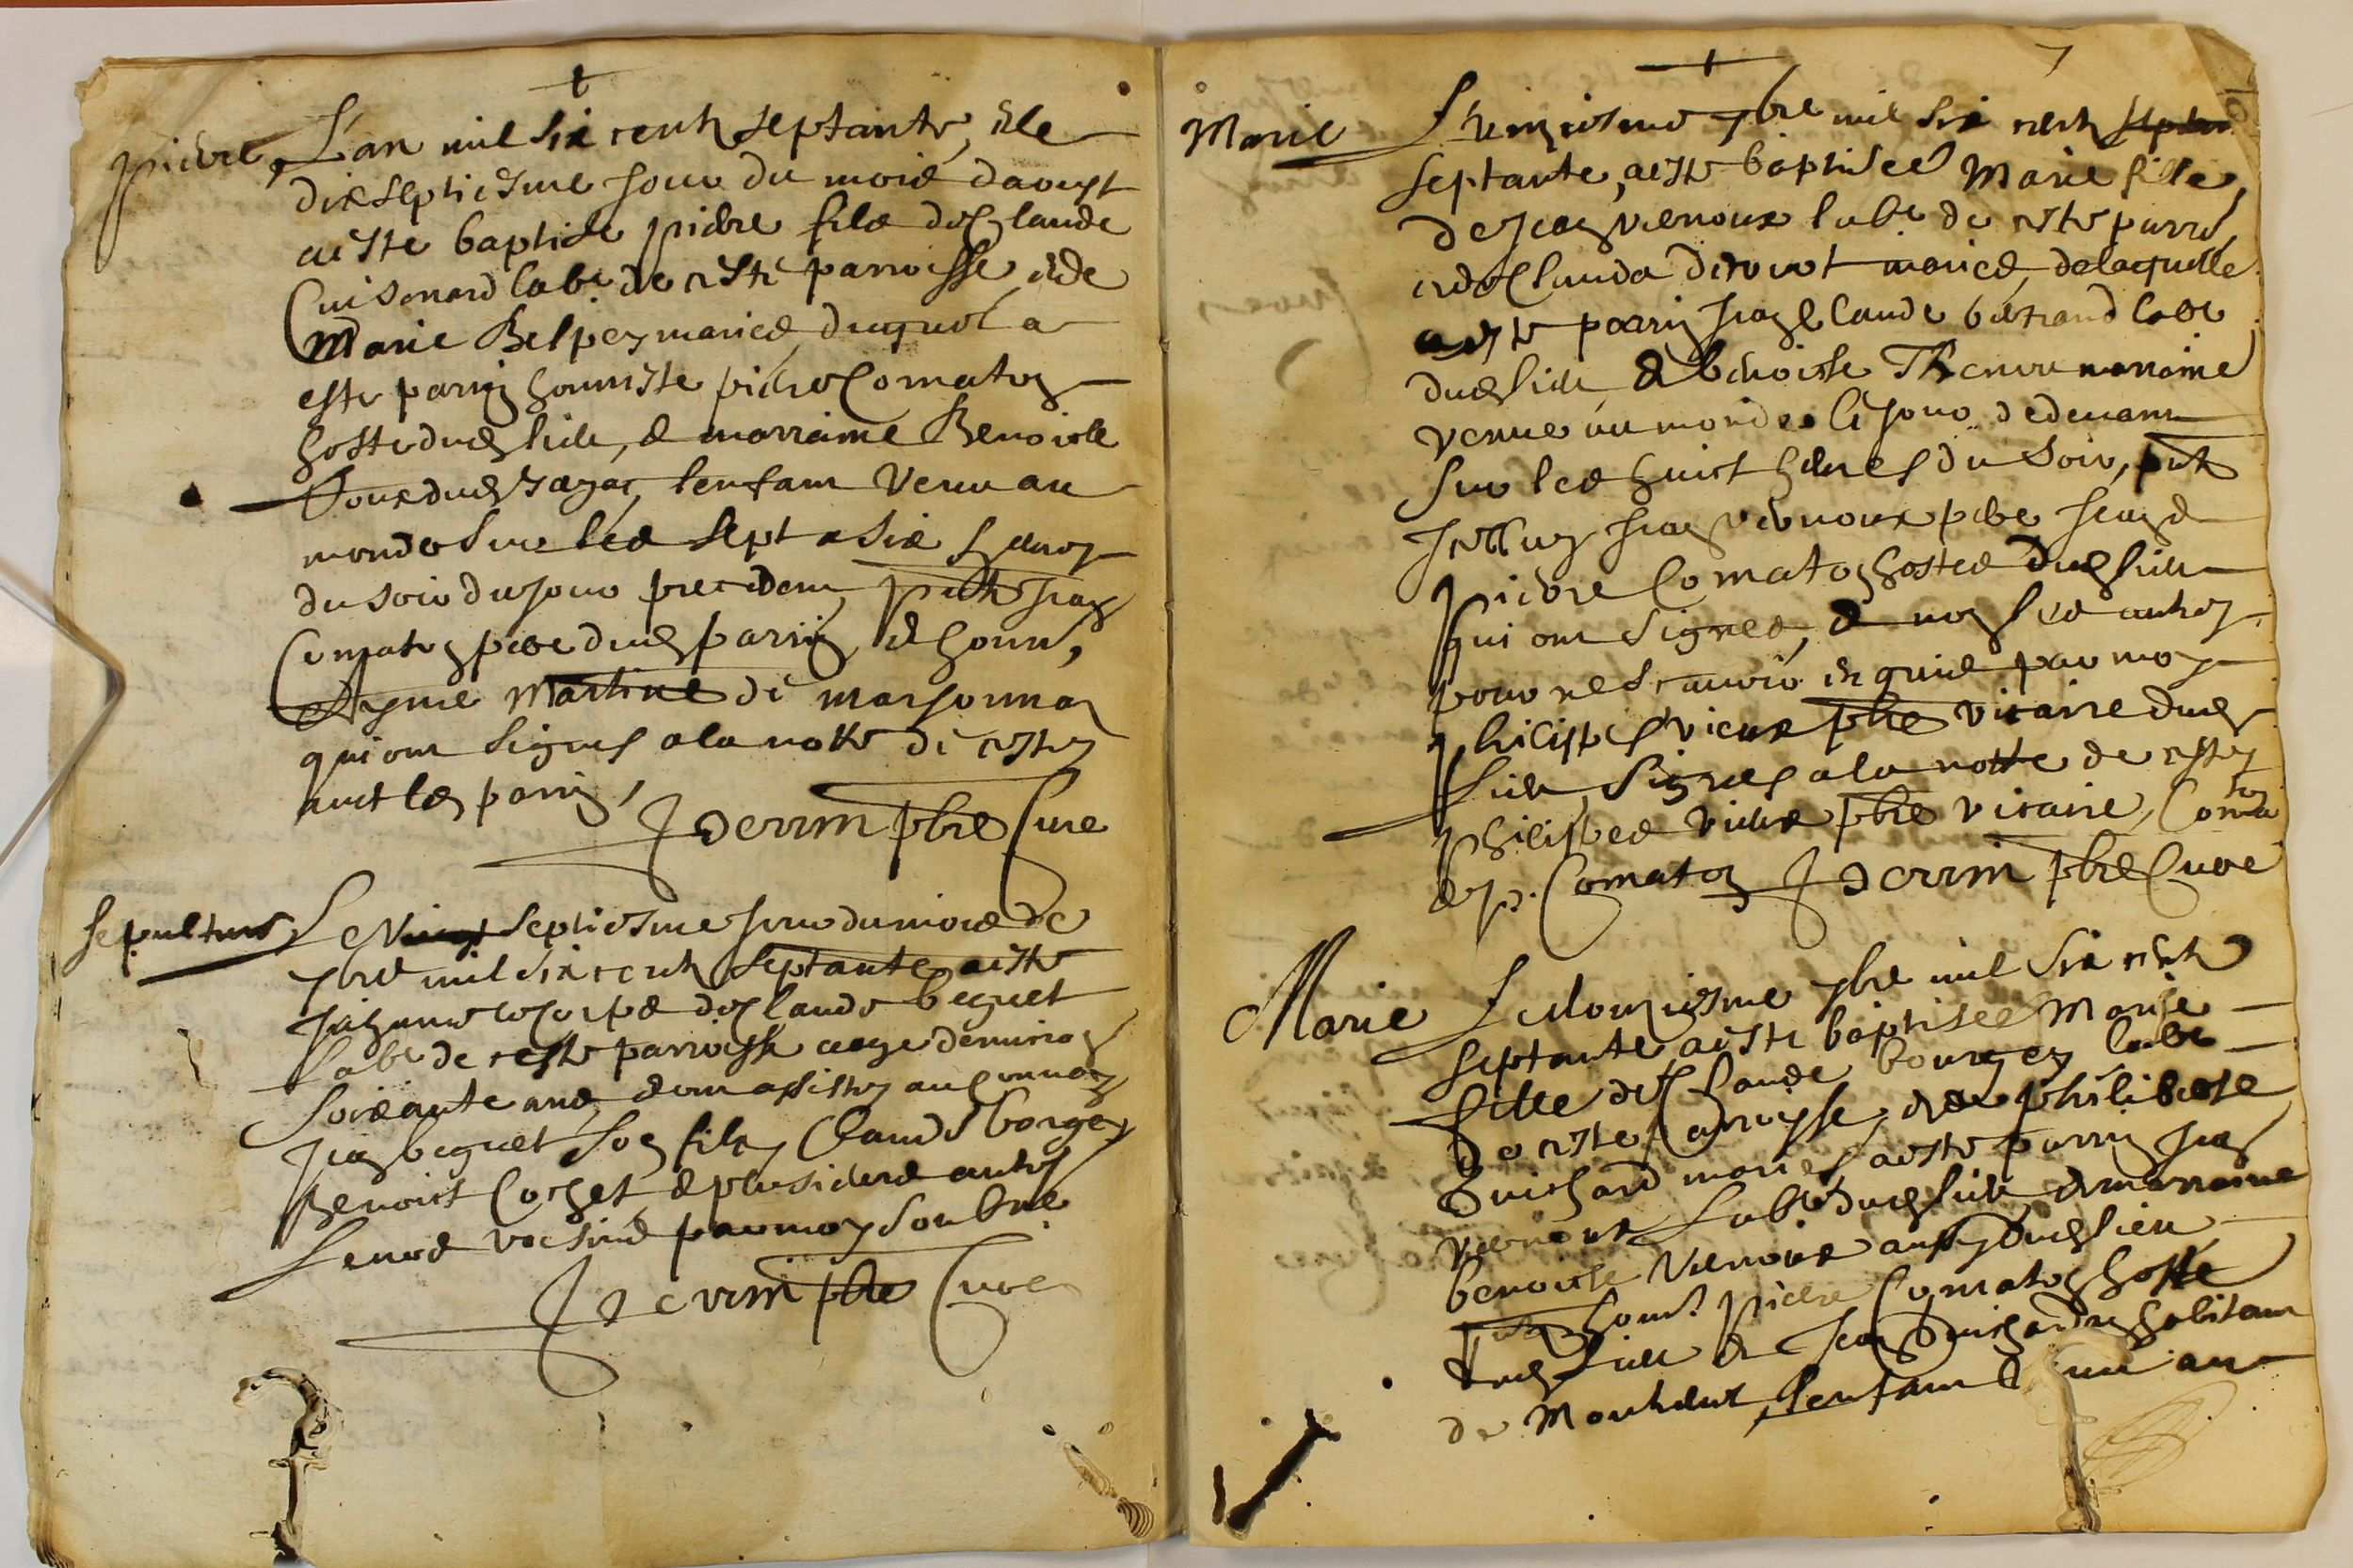 Pierre L'an mil six centz septante, & le
dixseptiesme jour du mois daoust
a este baptisé pierre filz de Claude
Cuisenard labr de ceste parroisse & de
Marie Belpey mariés, duquel a
este parrin honneste pierre Comaton
hoste dud lieu, & marraine Benoiste
lenfant venu au
monde sur les sept a six heures
du soir du jour precedent, pnts Jean
Comaton pere dud parrin & honn,
Ayme Martine de marsonnas
qui ont signes a la notte de cestes
avect led parrin,
J Derrim pbre Cure
Sepulture Le Vingt septiesme jour du mois de
7bre mil six centz septante a este
inhumé le corps de Claude beguet
labr de ceste parroisse aage denviron
soixante ans, & ont assistes au convoy
Jean beguet son filz, Claude borgey
Benoist Corget & plusieurs autres
leurs voisins par moy soubne
J Derrim pbre Cure
7
Marie L'unziesme 7bre mil six centz septan
septante, a este baptisée Marie fille
de Jean vienoux labr de ceste parre
& de Clauda mariés, de laquelle
a este parrin Jean Claude labr
dud lieu & benoiste Thenou marraine
venue au monde le jour dedevant
sur les huict heures du soir, pnts
Jean vienoux pere Jean &
pierre Comaton hostes dud lieu
qui ont signes, & non les autres
pour ne scavoir enquis par moy
philippes vieux pbre vicaire dud
lieu, signes a la notte de cestes
philippes vieux pbre vicaire, Comaton
& p. Comaton J Derrim pbre Cure
Marie Le douziesme 7bre mil six centz
septante a este baptisée Marie
fille de Claude bourgey labr
de ceste parroisse, & de philiberte
Guichard mariés a este parrin Jean
vienoux labr dud lieu, & marraine
benoiste vienoux aussy dud lieu
pnts honn. pierre Comaton hoste
dud lieu & Jean Guichard habitant
de Monthieux, lenfant venue au